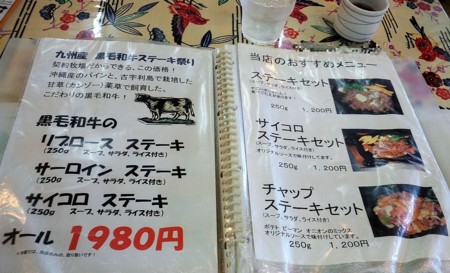 九州産 黒毛和牛ステーキ祭り
契約牧場だからできる、この価格！
沖縄産のパインと、古宇利島で栽培した
甘草(カンゾー)薬草で飼育した、
こだわりの黒毛和牛！
黒毛和牛の
リブロース ステーキ
(250g スープ、サラダ、ライス付き)
サーロイン ステーキ
(250g スープ、サラダ、ライス付き)
サイコロ ステーキ
(250g スープ、サラダ、ライス付き)
オール 1980円
当店のおすすめメニュー
ステーキセット
(スープ、サラダ、ライス付き)
250g 1,200円
サイコロ
ステーキセット
(スープ、サラダ、ライス付き)
オリジナルソースで味付けしてます。
250g 1,200円
チャップ
ステーキセット
(スープ、サラダ、ライス付き)
ポテチ ピーマン オニオンのミックス
オリジナルソースで味付けしています。
250g 1,200円